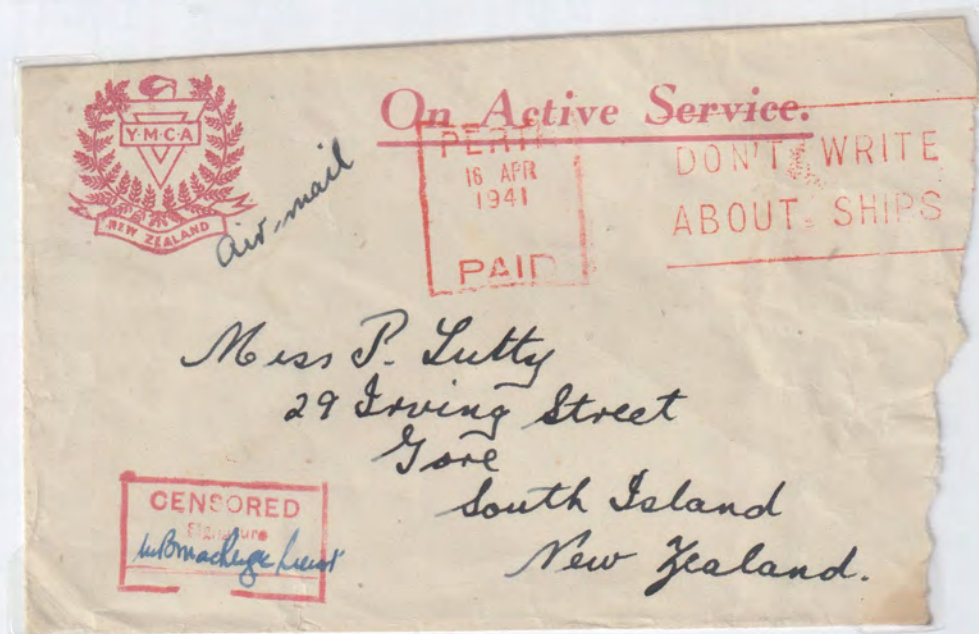 Y·M·C·A
NEW ZEALAND
On Active Service.
air-mail
PERTH
16 APR
1941
PAID
DON'T WRITE
ABOUT SHIPS
Miss P. Lutty
29 Irving Street
Gore
South Island
New Zealand.
CENSORED
Signature